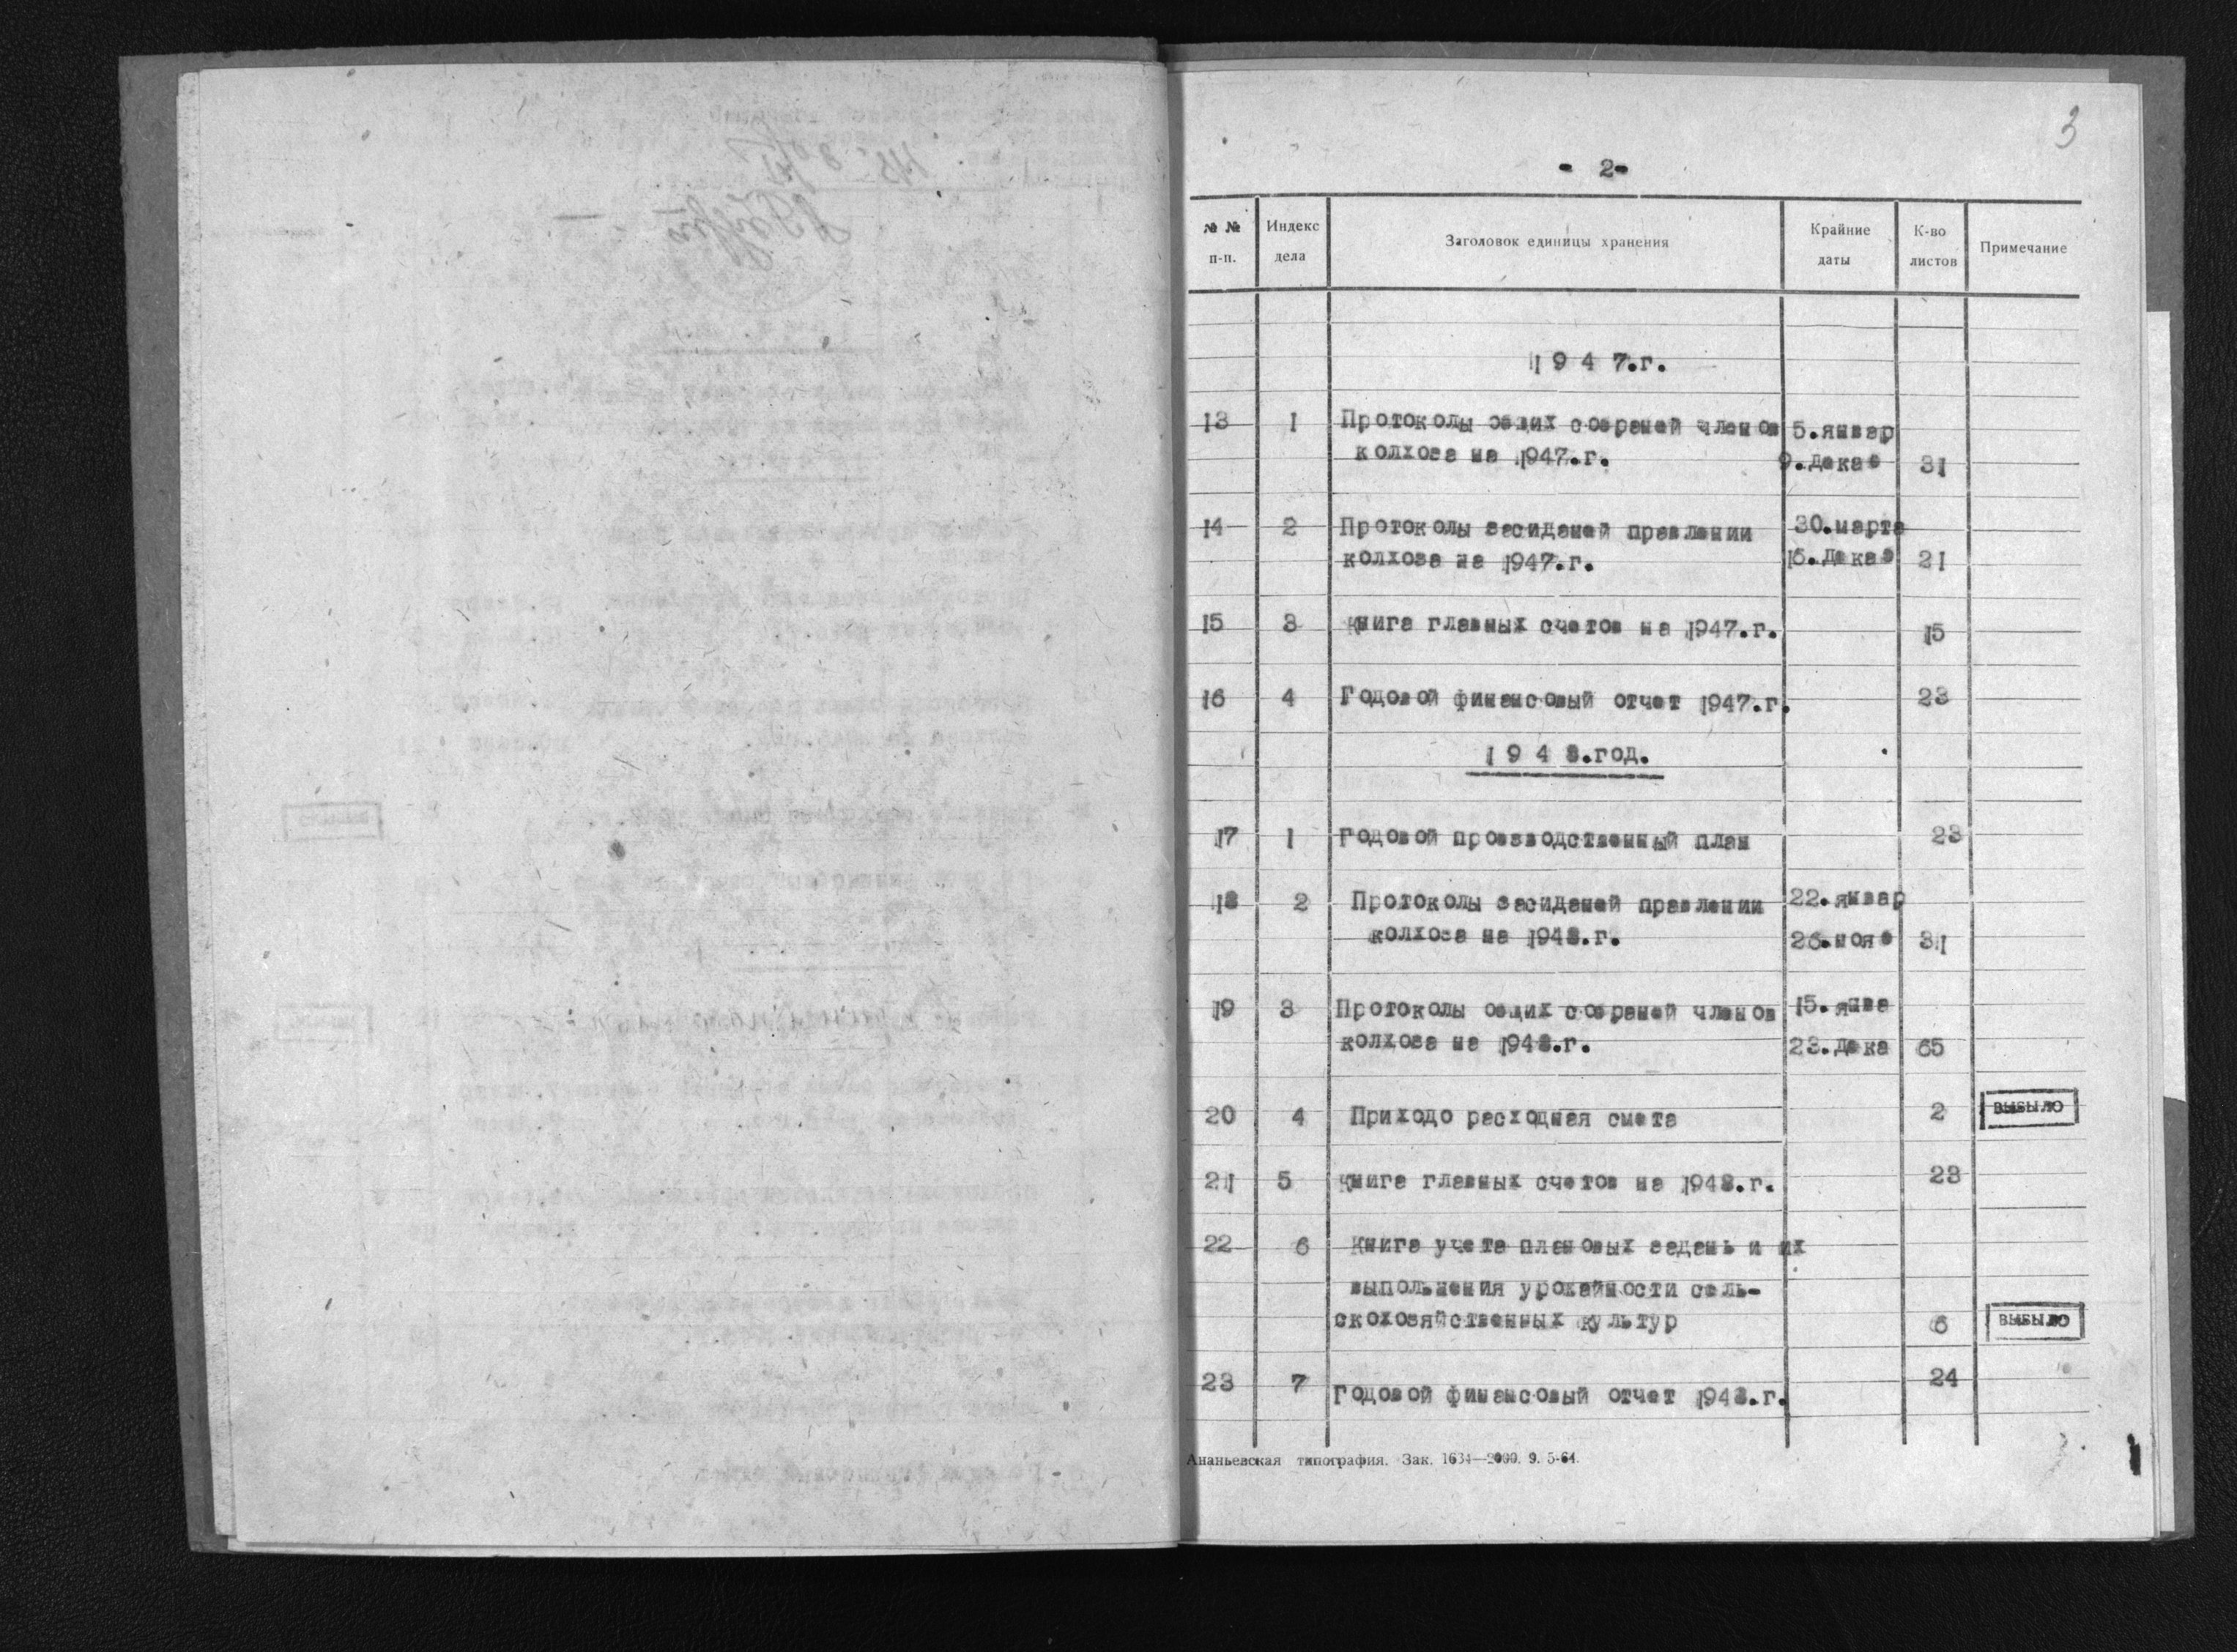 3
- 2-
№ № п-п. Индекс дела Заголовок единицы хранения Крайние даты К-во листов Примечание
1 9 4 7.г.
13 1 Протоколы общих собраней членов 5.январ
колхоза на 1947.г. 9.декаб 31
14 2 Протоколы засиданей правлении 30.марта
колхоза на 1947.г. 16.декаб 21
15 3 книга главных счетов на 1947.г. 15
16 4 Годовой финансовый отчет 1947.г. 23
1 9 4 8.год.
17 1 годовой производственный план 23
18 2 Протоколы засиданей правлении 22.январ
колхоза на 1948.г. 26.нояб 31
19 3 Протоколы общих собраней членов 15.янва
колхоза на 1948.г. 23.дека 65
20 4 Приходо расходная смета 2 ВЫБЫЛО
21 5 книга главных счетов на 1948.г. 23
22 6 книга учета плановых задань и их
выпольнения урожайности сель-
скохозяйственных культур 6 ВЫБЫЛО
23 7 годовой финансовый отчет 1948.г. 24
Ананьевская типография. Зак. 1634—2000. 9. 5-64.